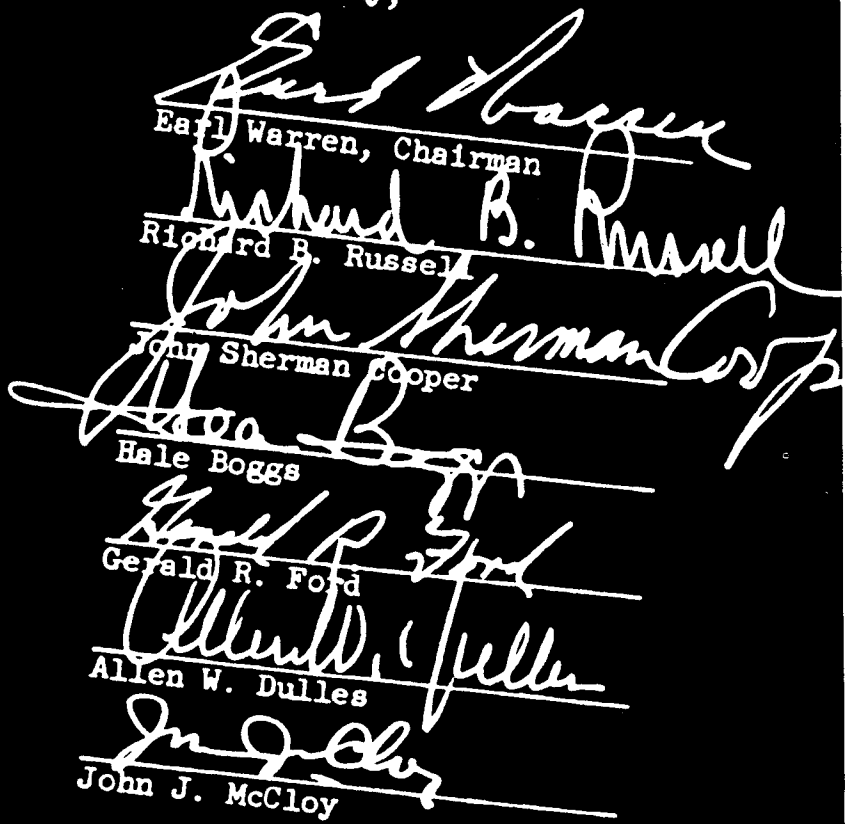 Earl Warren
Earl Warren, Chairman
Richard B. Russell
Richard B. Russell
John Sherman Coop
John Sherman Cooper
Hale Boggs
Hale Boggs
Gerald R. Ford
Gerald R. Ford
Allen W. Dulles
Allen W. Dulles
John J. McCloy